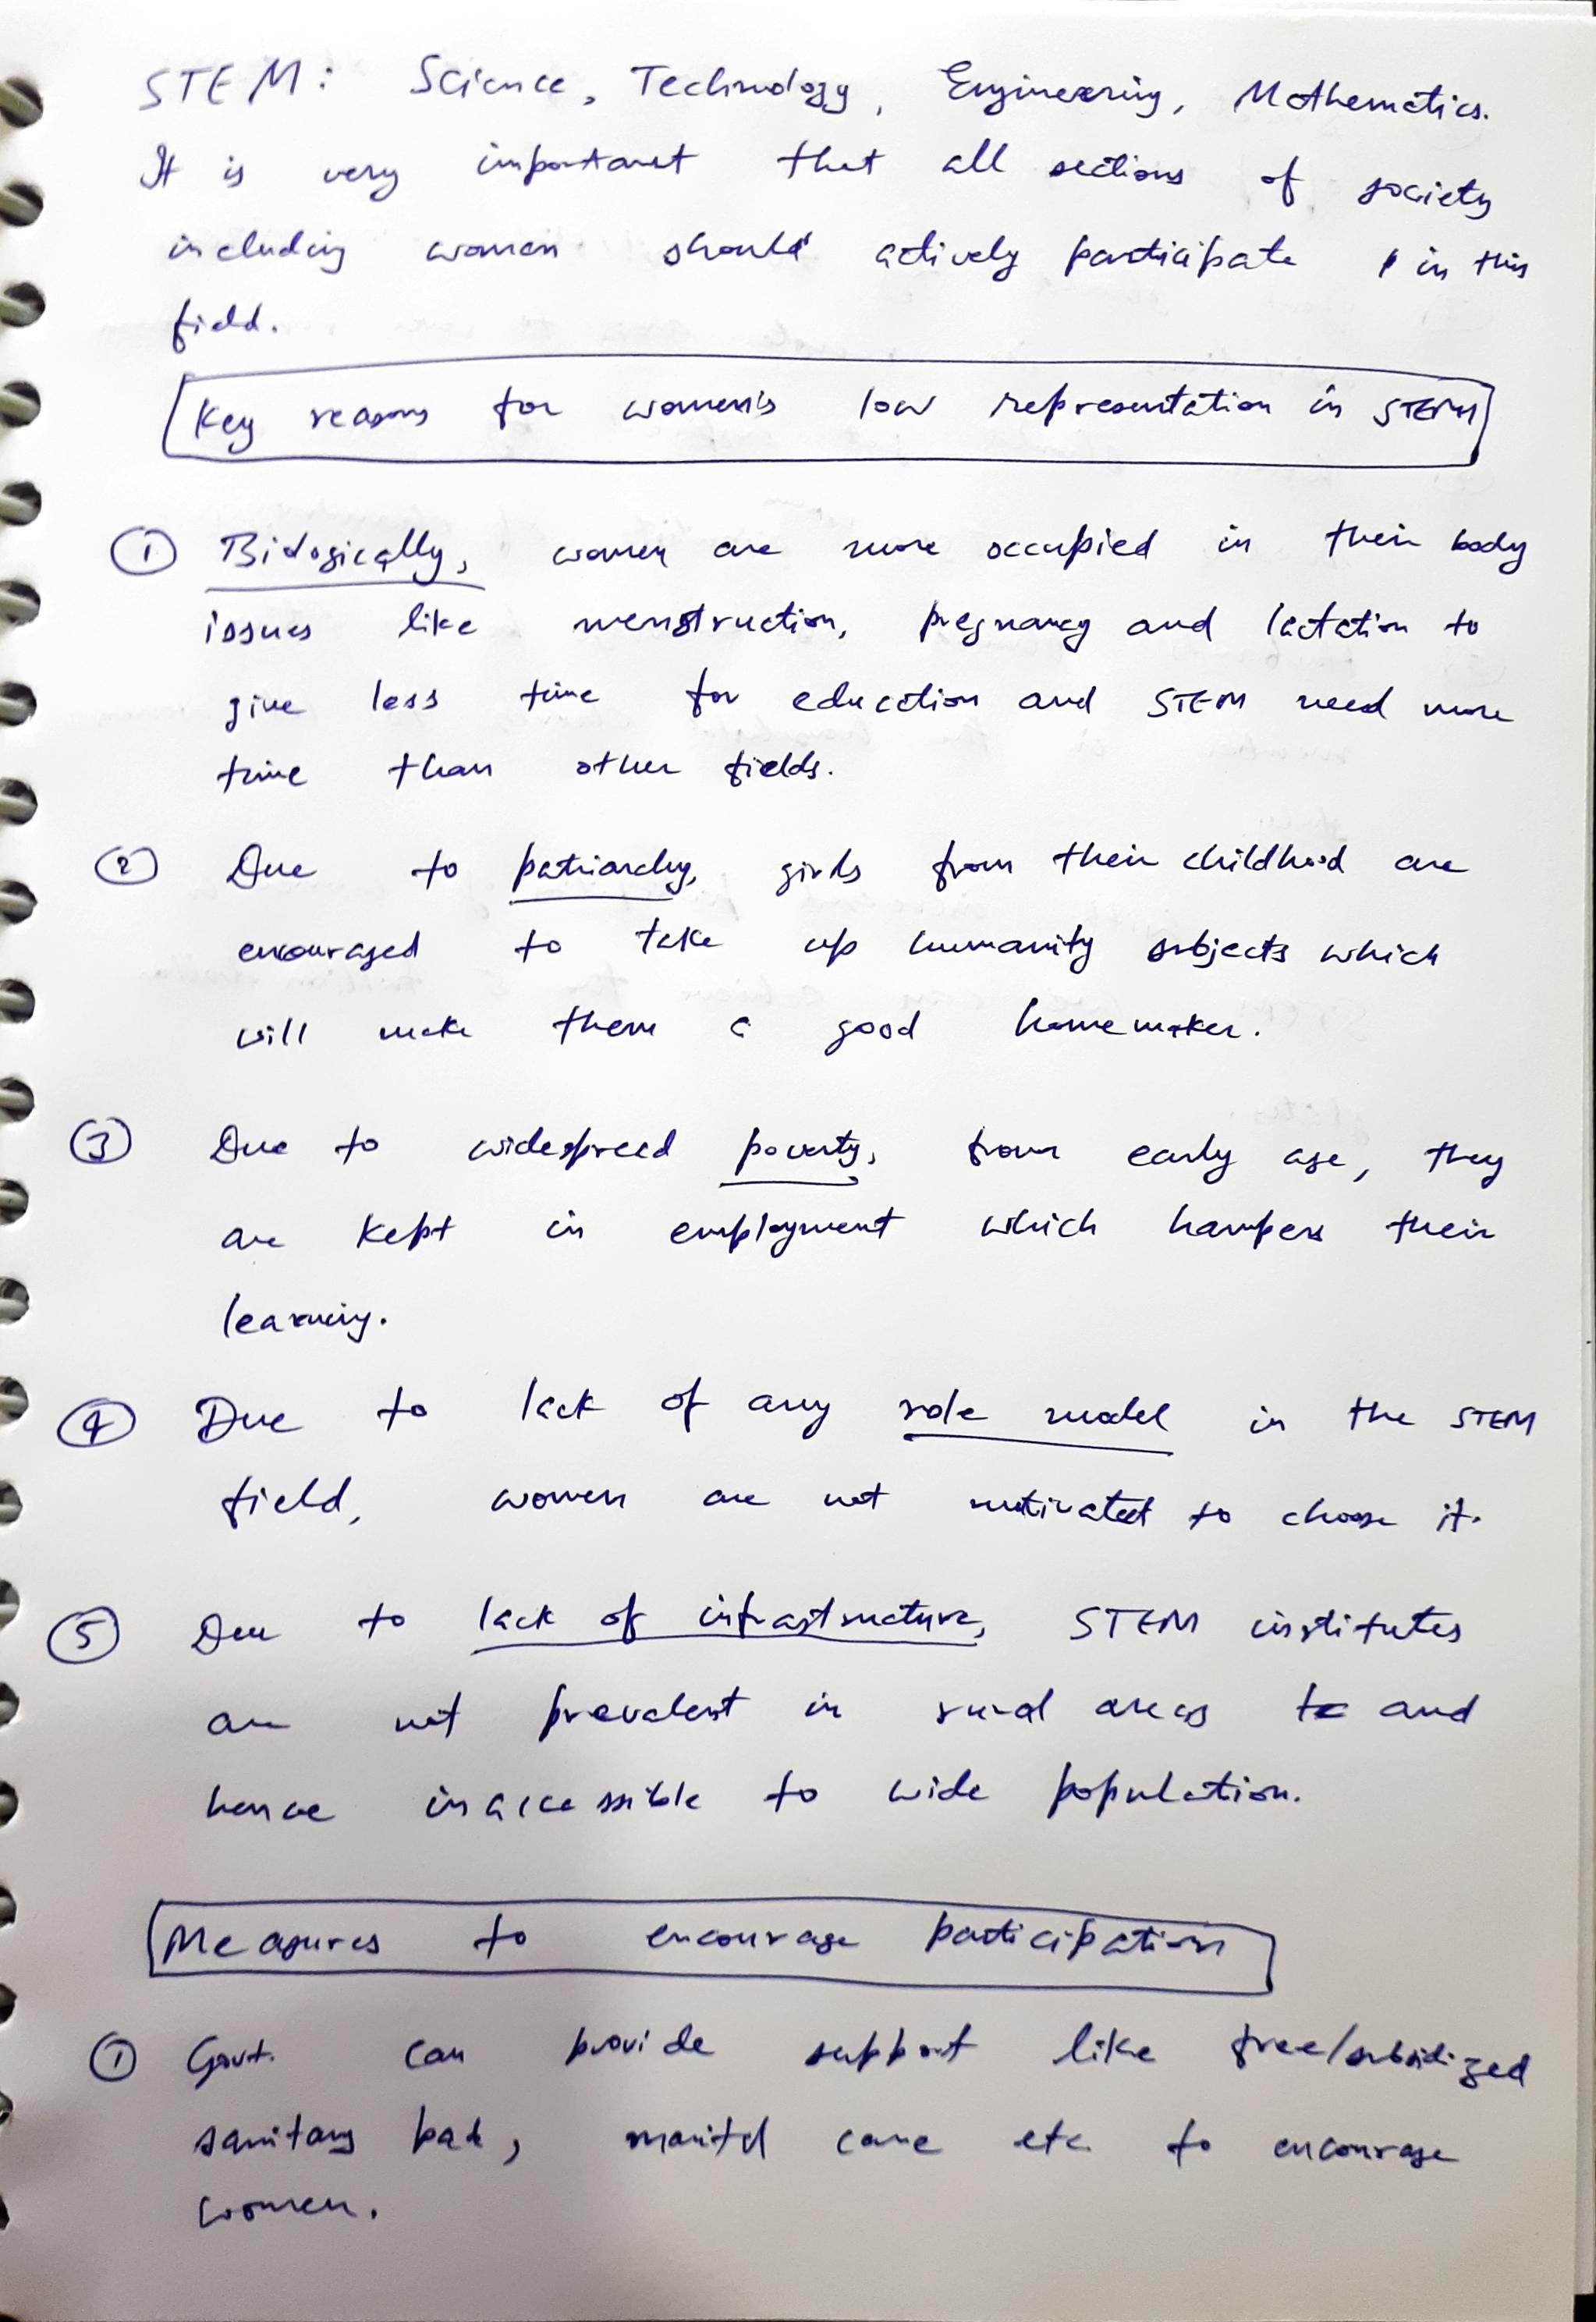 STEM: Science, Technology, Engineering, Mathematics.
It is very important that all sections of society
including women should actively participate in this
field.
Key reasons for women's low representation in STEM
① Biologically, women are more occupied in their body
issues like menstruction, pregnancy and lactation to
give less time for education and STEM need more
time than other fields.
② Due to patriarchy, girls from their childhood are
encouraged to take up humanity subjects which
will make them a good homemaker.
③ Due to widespread poverty, from early age, they
are kept in employment which hampers their
learning.
④ Due to lack of any role model in the STEM
field, women are not motivated to choose it.
⑤ Due to lack of infrastructure, STEM institutes
are not prevalent in rural areas and
hence inaccessible to wide population.
Measures to encourage participation
① Govt. can provide support like free/subsidized
sanitary pad, care etc. to encourage
women.